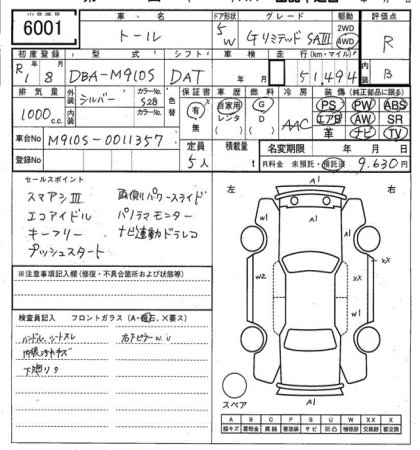 6001
車・名
トール
ドア形状
5
W
グレード
GリミテッドSAⅢ
駆動
2WD
4WD
評価点
R
初度登録
R1年8月
型式
DBA-M910S
シフト
DAT
車検
年 月
走行(km・マイル)
51,494
内装
B
排気量
1000c.c.
外装
シルバー
カラーNo.
S28
内装
カラーNo.
色替
保証書
有
無
車歴
自家用
レンタ
燃料
G
D
冷房
AAC
装備(純正部品に限る)
PS PW ABS
エアB AW SR
革 ナビ TV
車台No
M910S-0011357
登録No
定員
5人
積載量
t
名変期限 年 月 日
R料金 未預託・預託済 9,630円
セールスポイント
スマアシⅢ
両側パワースライド
エコアイドル
パノラマモニター
キーフリー
ナビ連動ドラレコ
プッシュスタート
※注意事項記入欄(修復・不具合箇所および状態等)
検査員記入
フロントガラス(A・飛石、×要ス)
ハンドル、シートスレ
右下ピラーW、U
内張コキズ
下廻りサ
左
右
A1
W1
A1
W2
XX
XX
W1
A1
スペア
A B C P S U W XX X
線キズ 要板金 腐食 要塗装 サビ 凹凸 補修跡 交換跡 要交換